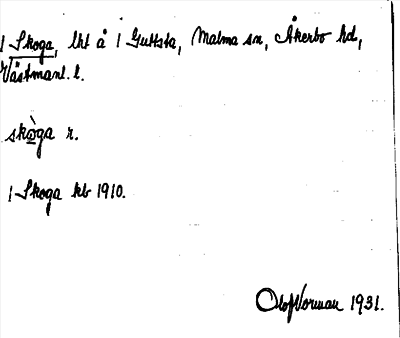 1 Skoga, lht å 1 Guttsta, Malma sn, Åkerbo hd,
Västmanl. l.
skòga r.
1 Skoga kb 1910.
Olof Norman 1931.